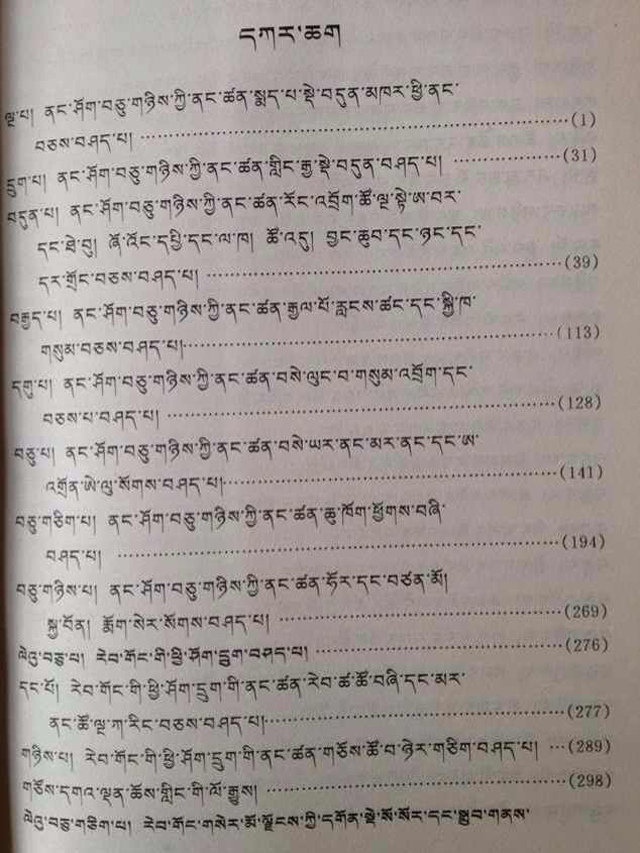 དཀར་ཆག
ལྔ་པ། ནང་ཤོག་བཅུ་གཉིས་ཀྱི་ནང་ཚན་སྨད་པ་སྡེ་བདུན་མཁར་ཕྱི་ནང་
བཅས་བཤད་པ། ……………………………………(1)
དྲུག་པ། ནང་ཤོག་བཅུ་གཉིས་ཀྱི་ནང་ཚན་གླིང་རྒྱ་སྡེ་བདུན་བཤད་པ། ……………(31)
བདུན་པ། ནང་ཤོག་བཅུ་གཉིས་ཀྱི་ནང་ཚན་རོང་འབྲོག་ཚོ་ལྔ་སྟེ་ཨ་བར་
དང་ཐེ་བུ། ཞོ་འོང་དཔྱི་དང་ལ་ཁ། ཚོ་འདུ། བྱང་ཆུབ་དང་ཉང་དང་
དར་གྲོང་བཅས་བཤད་པ། ……………………………………(39)
བརྒྱད་པ། ནང་ཤོག་བཅུ་གཉིས་ཀྱི་ནང་ཚན་རྒྱལ་པོ་རླངས་ཚང་དང་སྐྱི་ཁ་
གསུམ་བཅས་བཤད་པ།……………………………………(113)
དགུ་པ། ནང་ཤོག་བཅུ་གཉིས་ཀྱི་ནང་ཚན་བསེ་ལུང་བ་གསུམ་འབྲོག་དང་
བཅས་པ་བཤད་པ། ……………………………………(128)
བཅུ་པ། ནང་ཤོག་བཅུ་གཉིས་ཀྱི་ནང་ཚན་བསེ་ཡར་ནང་མར་ནང་དང་ཨ་
འགྲོན་ཨེ་ལུ་སོགས་བཤད་པ།……………………………………(141)
བཅུ་གཅིག་པ། ནང་ཤོག་བཅུ་གཉིས་ཀྱི་ནང་ཚན་ཆུ་ཁོག་ཕྱོགས་བཞི་
བཤད་པ། ……………………………………(194)
བཅུ་གཉིས་པ། ནང་ཤོག་བཅུ་གཉིས་ཀྱི་ནང་ཚན་ཧོར་དང་བཙན་མོ།
སྐྱ་བོན། རྨོག་སེར་སོགས་བཤད་པ། ……………………………………(269)
ལེའུ་བཅུ་པ། རེབ་གོང་གི་ཕྱི་ཤོག་དྲུག་བཤད་པ། ……………………………………(276)
དང་པོ། རེབ་གོང་གི་ཕྱི་ཤོག་དྲུག་གི་ནང་ཚན་རེབ་ཚ་ཚོ་བཞི་དང་མར་
ནང་ཚོ་ལྔ་ཀ་རིང་བཅས་བཤད་པ།……………………………………(277)
གཉིས་པ། རེབ་གོང་གི་ཕྱི་ཤོག་དྲུག་གི་ནང་ཚན་གཙོས་ཚོ་བ་ཉེར་གཅིག་བཤད་པ། …(289)
གཙོས་དགའ་ལྡན་ཆོས་གླིང་གི་ལོ་རྒྱུས། ……………………………………(298)
ལེའུ་བཅུ་གཅིག་པ། རེབ་གོང་གསེར་མོ་ལྗོངས་ཀྱི་དགོན་སྡེ་སོ་སོར་དང་སྒྲུབ་གནས་